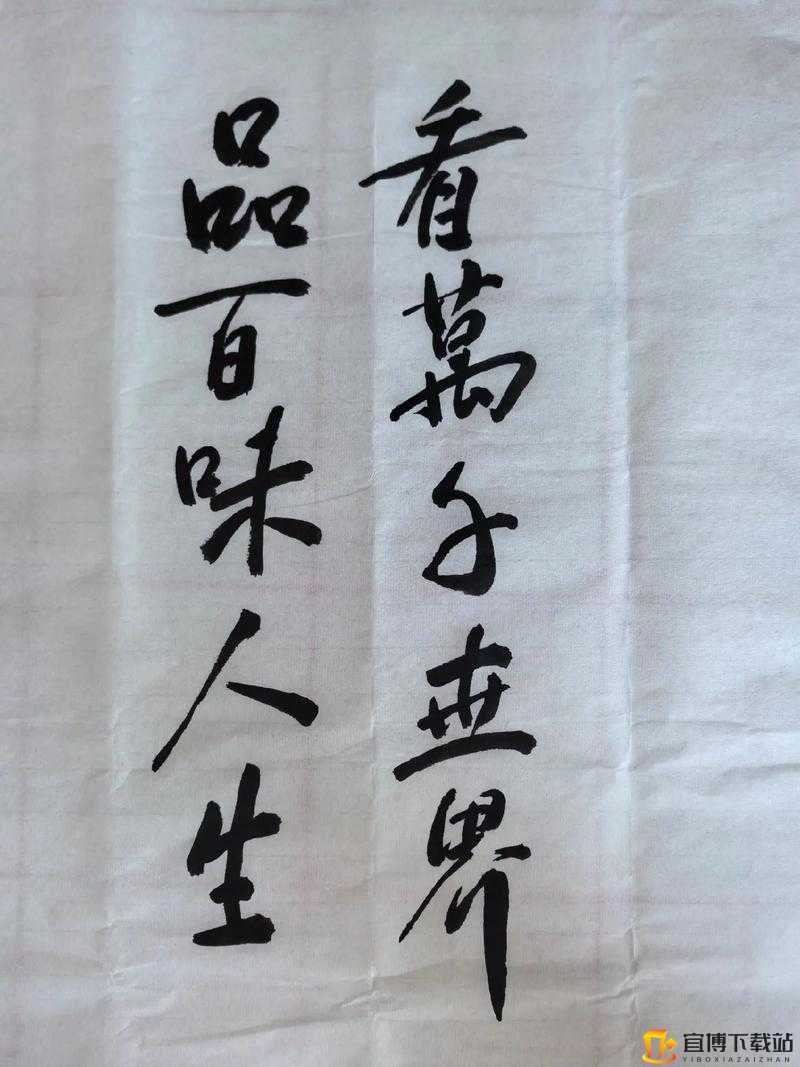 看萬千世界
品百味人生
宜博下载站
YIBOXIAZAIZHAN